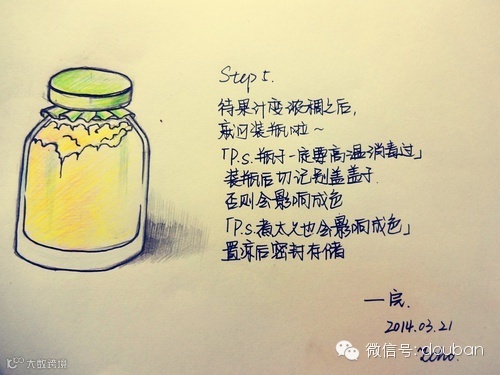 Step 5.
待果汁变浓稠之后,
就可装瓶啦~
「P.s.瓶子一定要高温消毒过」
装瓶后切记别盖盖子
否则会影响成色
「P.s.煮太久也会影响成色」
置凉后密封存储
—完.
2014.03.21
微信号: douban
大数跨境